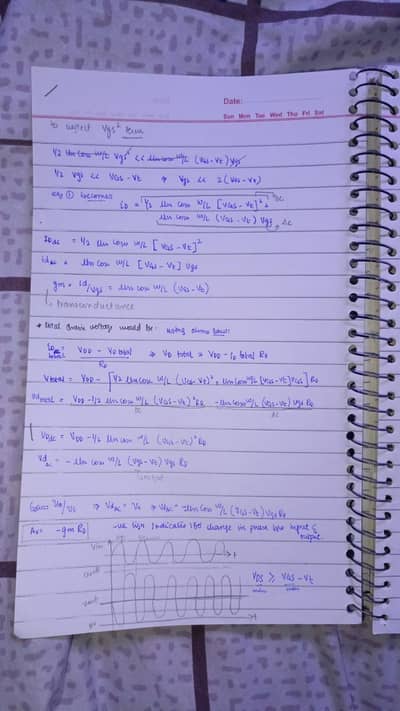 Date:
Sun Mon Tue Wed Thu Fri Sat
to neglect Vgs² term
1/2 Un Cox W/L Vgs² << Un Cox W/L (VGS-Vt) Vgs
1/2 Vgs << VGS - Vt ⇒ Vgs << 2(VGS-Vt)
eq ① becomes
iD = 1/2 Un Cox W/L [VGS-Vt]² + DC
Un Cox W/L (VGS-Vt) Vgs AC
= 1/2 Un Cox W/L [VGS-Vt]²
= Un Cox W/L [VGS-Vt] Vgs
gm = id/Vgs = Un Cox W/L (VGS-Vt)
transconductance
* total drain voltage would be: using ohms law:
total = VDD - VD total ⇒ VD total = VDD - iD total RD
RD
V total = VDD - [1/2 Un Cox W/L (VGS-Vt)² + Un Cox W/L (VGS-Vt) Vgs] RD
Vd total = VDD - 1/2 Un Cox W/L (VGS-Vt)² RD - Un Cox W/L (VGS-Vt) Vgs RD
DC AC
= VDD - 1/2 Un Cox W/L (VGS-Vt)² RD
Vd ac = - Un Cox W/L (VGS-Vt) Vgs RD
Gain
Av = -gm RD -ve sign indicates 180 change in phase b/w input &
output.
Vin t
VDS ≥ VGS - Vt
Vout
t